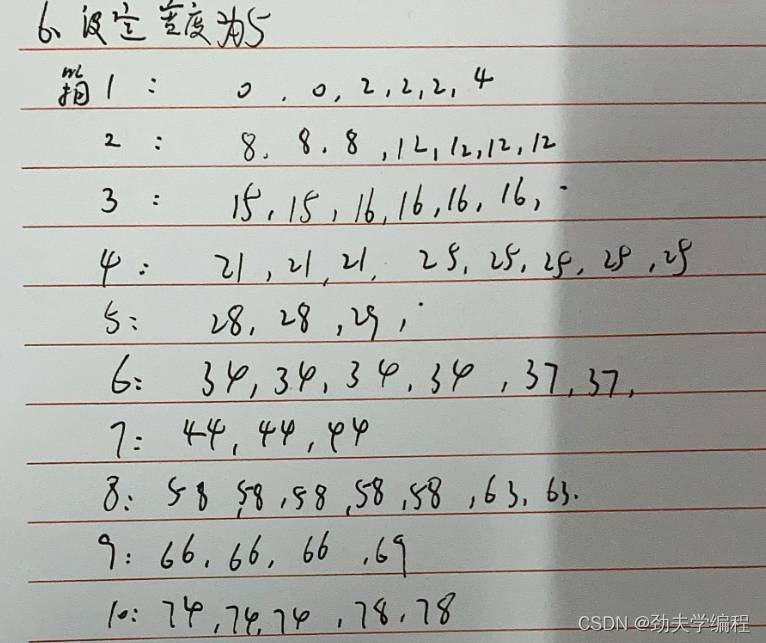 6、设定宽度为5
箱1: 0, 0, 2, 2, 2, 4
2: 8, 8, 8, 12, 12, 12, 12
3: 15, 15, 16, 16, 16, 16,
4: 21, 21, 21, 25, 25, 25, 25, 25
5: 28, 28, 29,
6: 34, 34, 34, 34, 37, 37,
7: 44, 44, 44
8: 58, 58, 58, 58, 58, 63, 63.
9: 66, 66, 66, 69
10: 74, 74, 74, 78, 78
CSDN @劲夫学编程